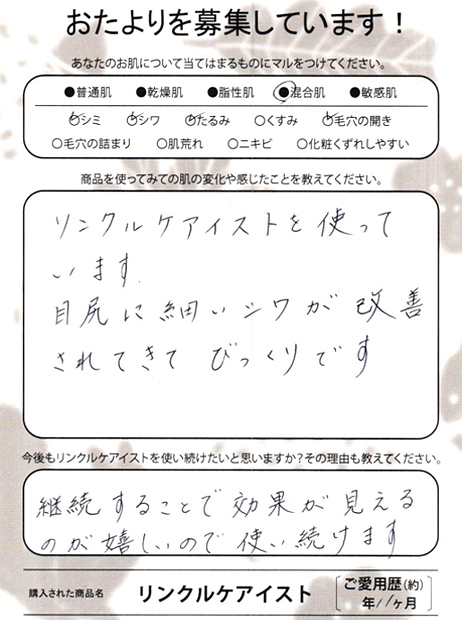 おたよりを募集しています！
あなたのお肌について当てはまるものにマルをつけてください。
●普通肌 ●乾燥肌 ●脂性肌 ●混合肌 ●敏感肌
○シミ ○シワ ○たるみ ○くすみ ○毛穴の開き
○毛穴の詰まり ○肌荒れ ○ニキビ ○化粧くずれしやすい
商品を使ってみての肌の変化や感じたことを教えてください。
リンクルケアイストを使って
います.
目尻に細いシワが改善
されてきてびっくりです
今後もリンクルケアイストを使い続けたいと思いますか？その理由も教えてください。
継続することで効果が見える
のが嬉しいので使い続けます
購入された商品名 リンクルケアイスト ご愛用歴(約)
年11ヶ月